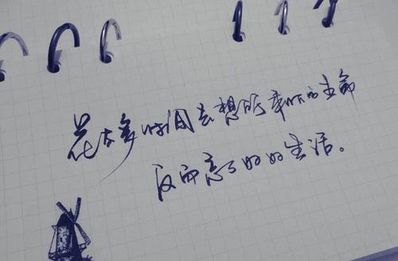 花太多时间去想所剩下的生命
反而忘了好好的生活。